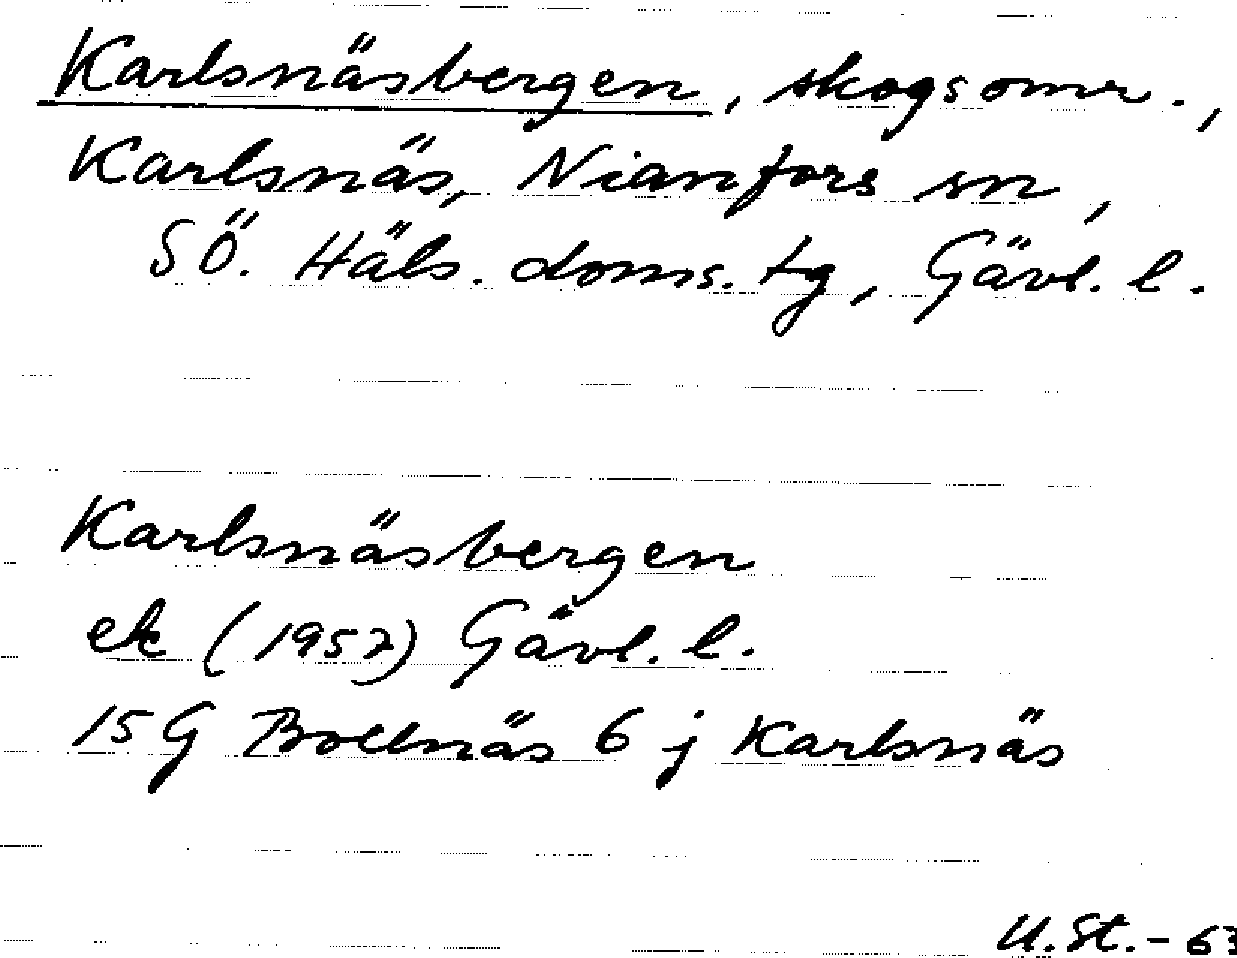 Karlsnäsbergen, skogsomr.,
Karlsnäs, Nianfors sn,
SÖ. Häls. doms. tg, Gävl. l.
Karlsnäsbergen
ek (1957) Gävl. l.
15 G Bollnäs 6 j Karlsnäs
U.St.-63